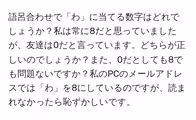 語呂合わせで「わ」に当てる数字はどれで
しょうか？私は常に8だと思っていました
が、友達は0だと言っています。どちらが正
しいのでしょうか？また、0だとしても8で
も問題ないですか？私のPCのメールアドレ
スでは「わ」を8にしているのですが、読ま
れなかったら恥ずかしいです。